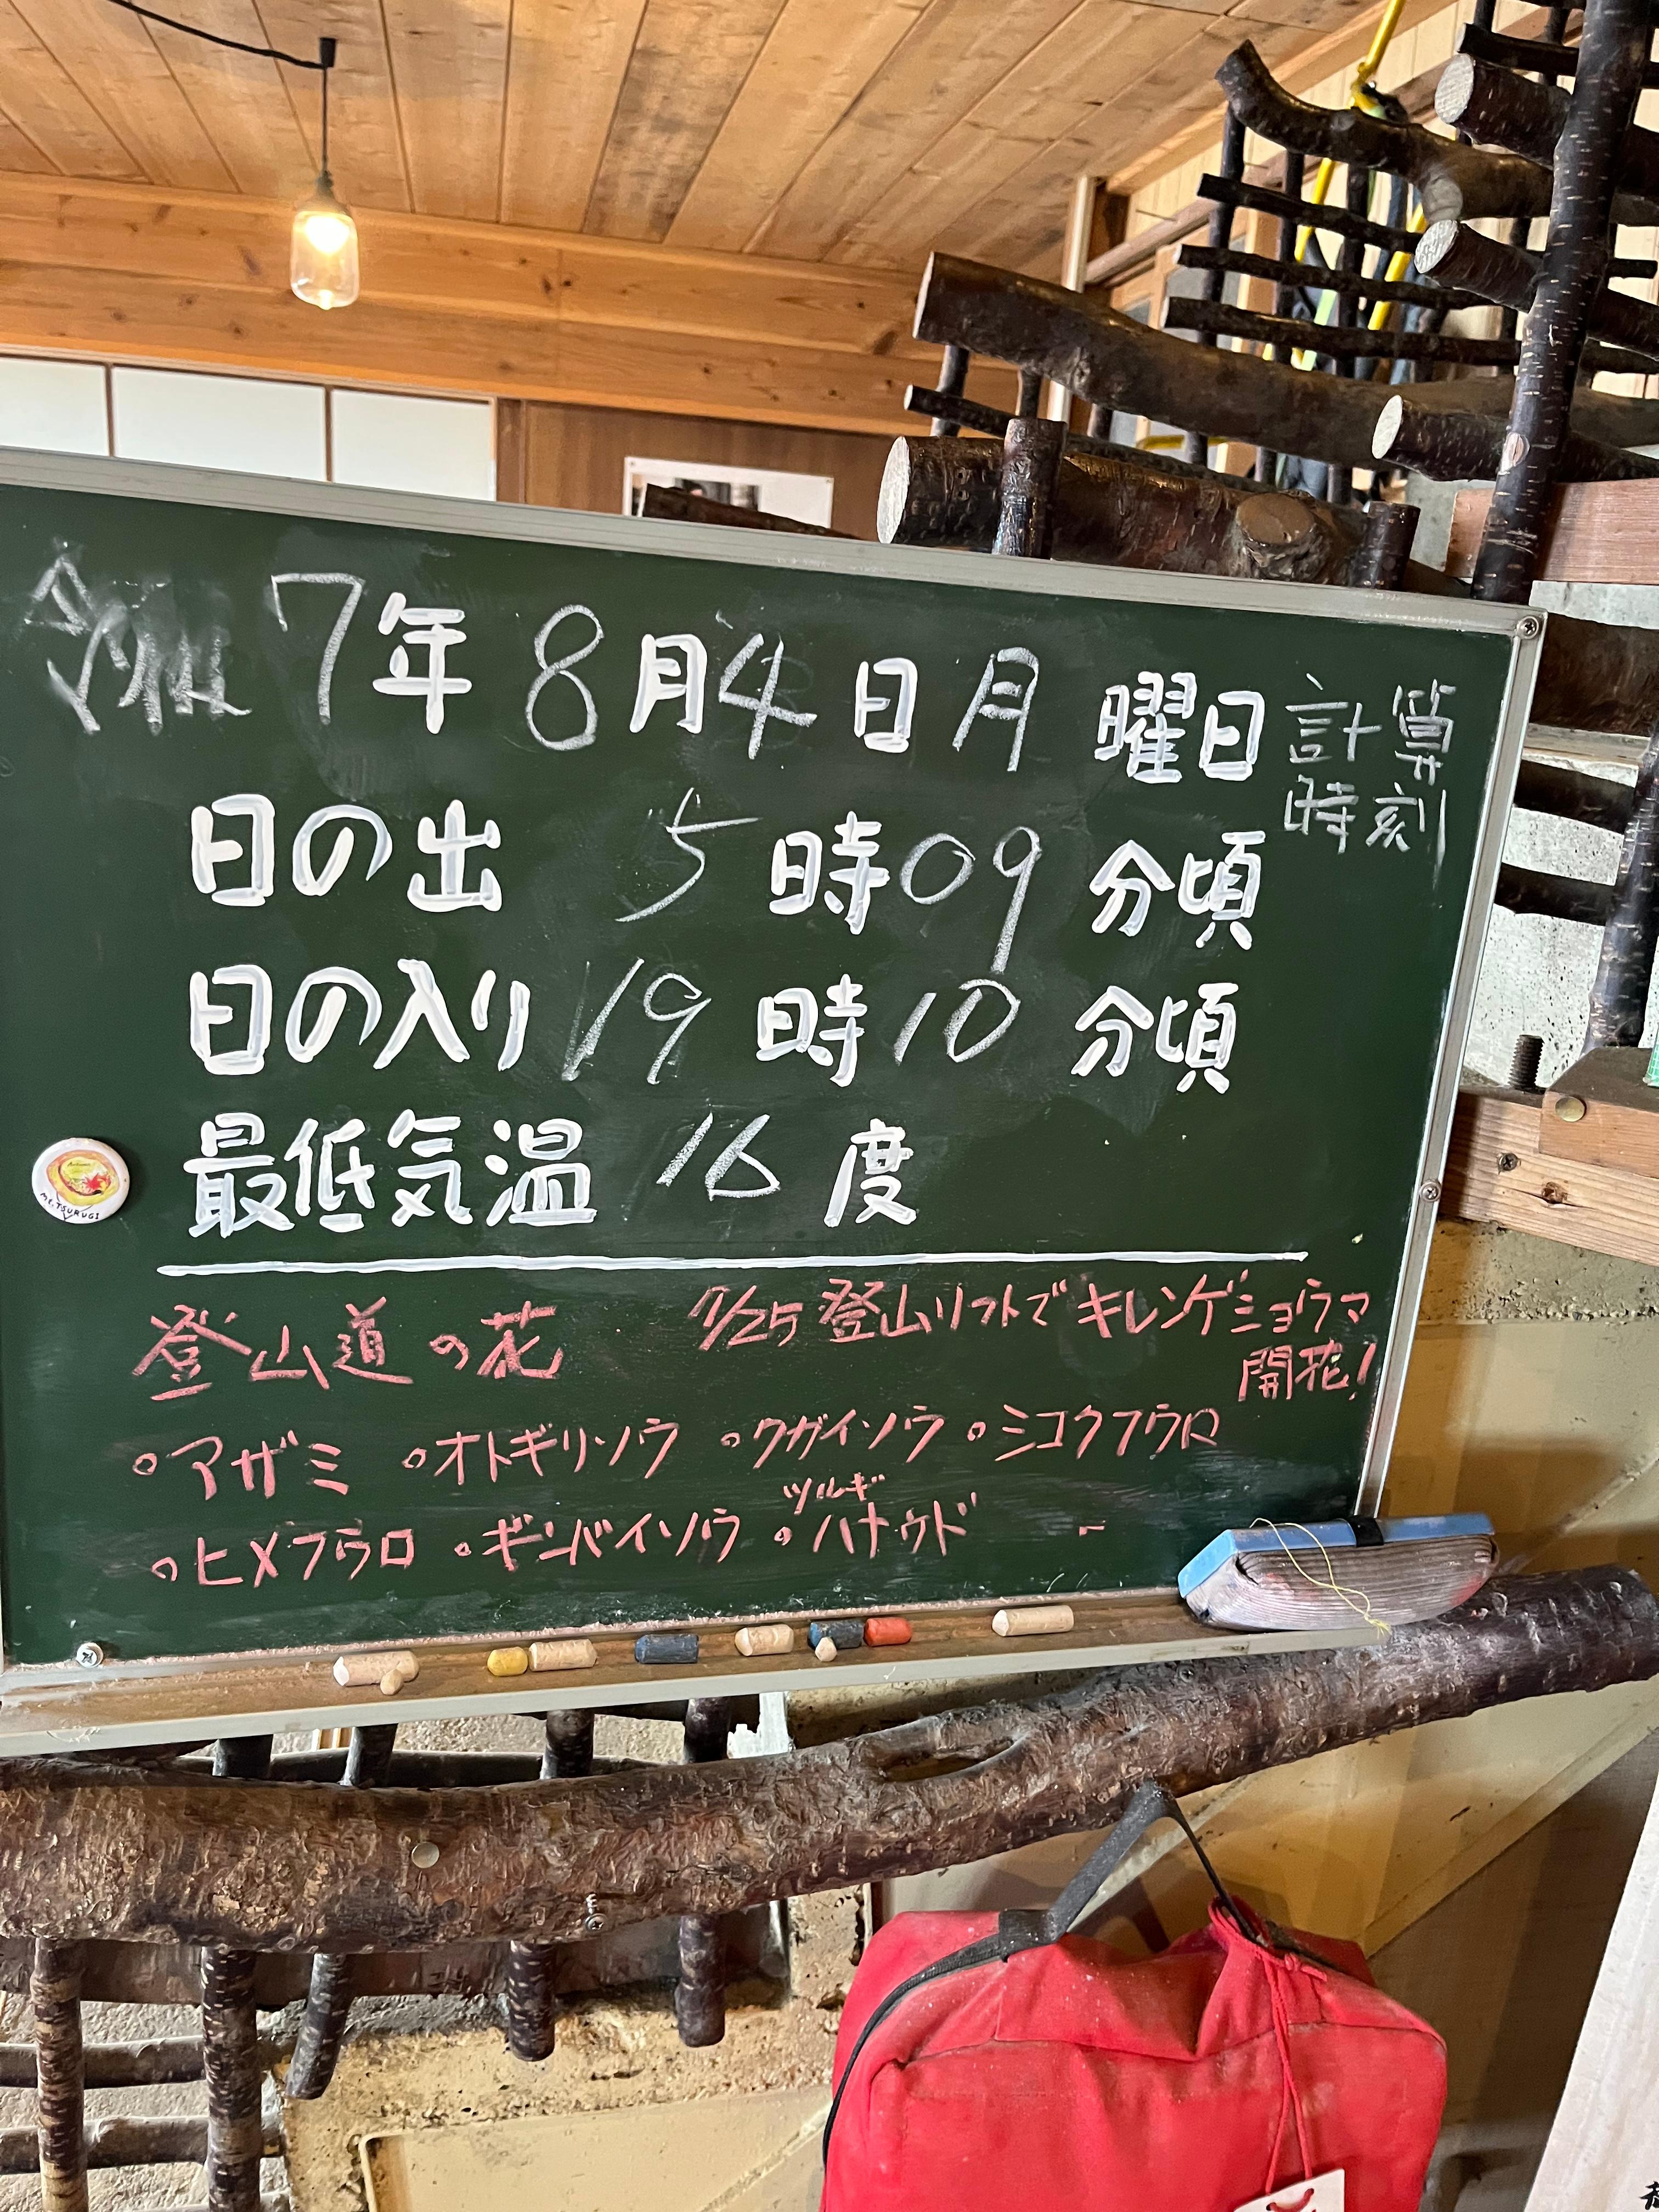 令和7年8月4日月曜日 計算時刻
日の出 5時09分頃
日の入り 19時10分頃
最低気温 16度
登山道の花 7/25 登山リフトでキレンゲショウマ
開花!
・アザミ ・オトギリソウ ・クガイソウ ・シコクフウロ
・ヒメフウロ ・ギンバイソウ ・ツルギハナウド
Mt.TSURUGI